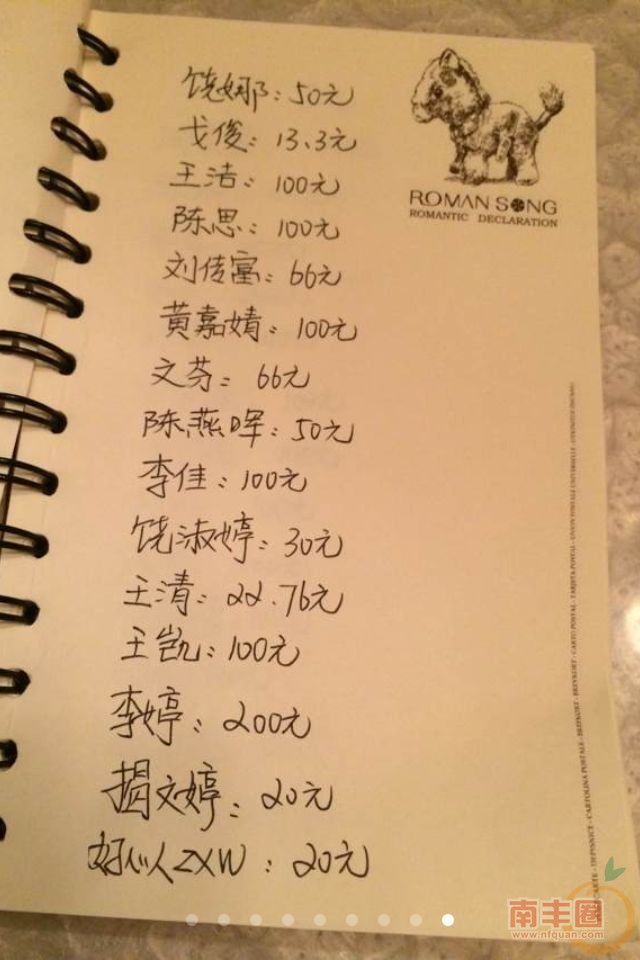 饶娜：50元
戈俊：13.3元
王洁：100元
陈思：100元
刘传富：66元
黄嘉婧：100元
文芬：66元
陈燕晖：50元
李佳：100元
饶淑婷：30元
王清：22.76元
王凯：100元
李婷：200元
揭文婷：20元
好心人ZXW：20元
ROMAN SONG
ROMANTIC DECLARATION
南丰圈
www.nfquan.com